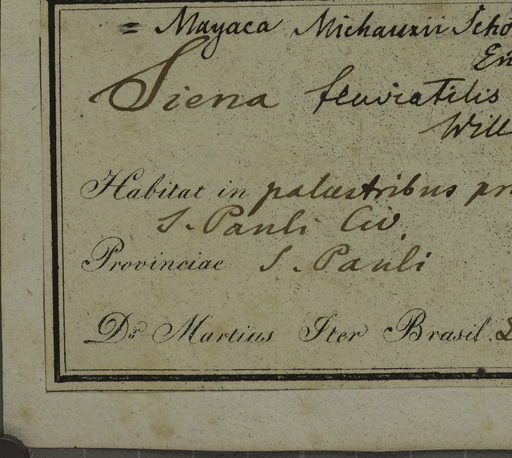 = Mayaca Michauxii Scho
En
Siena fluviatilis
Will
Habitat in palustribus pr
S. Pauli Civ.
Provinciae S. Pauli
Dr. Martius Iter Brasil.